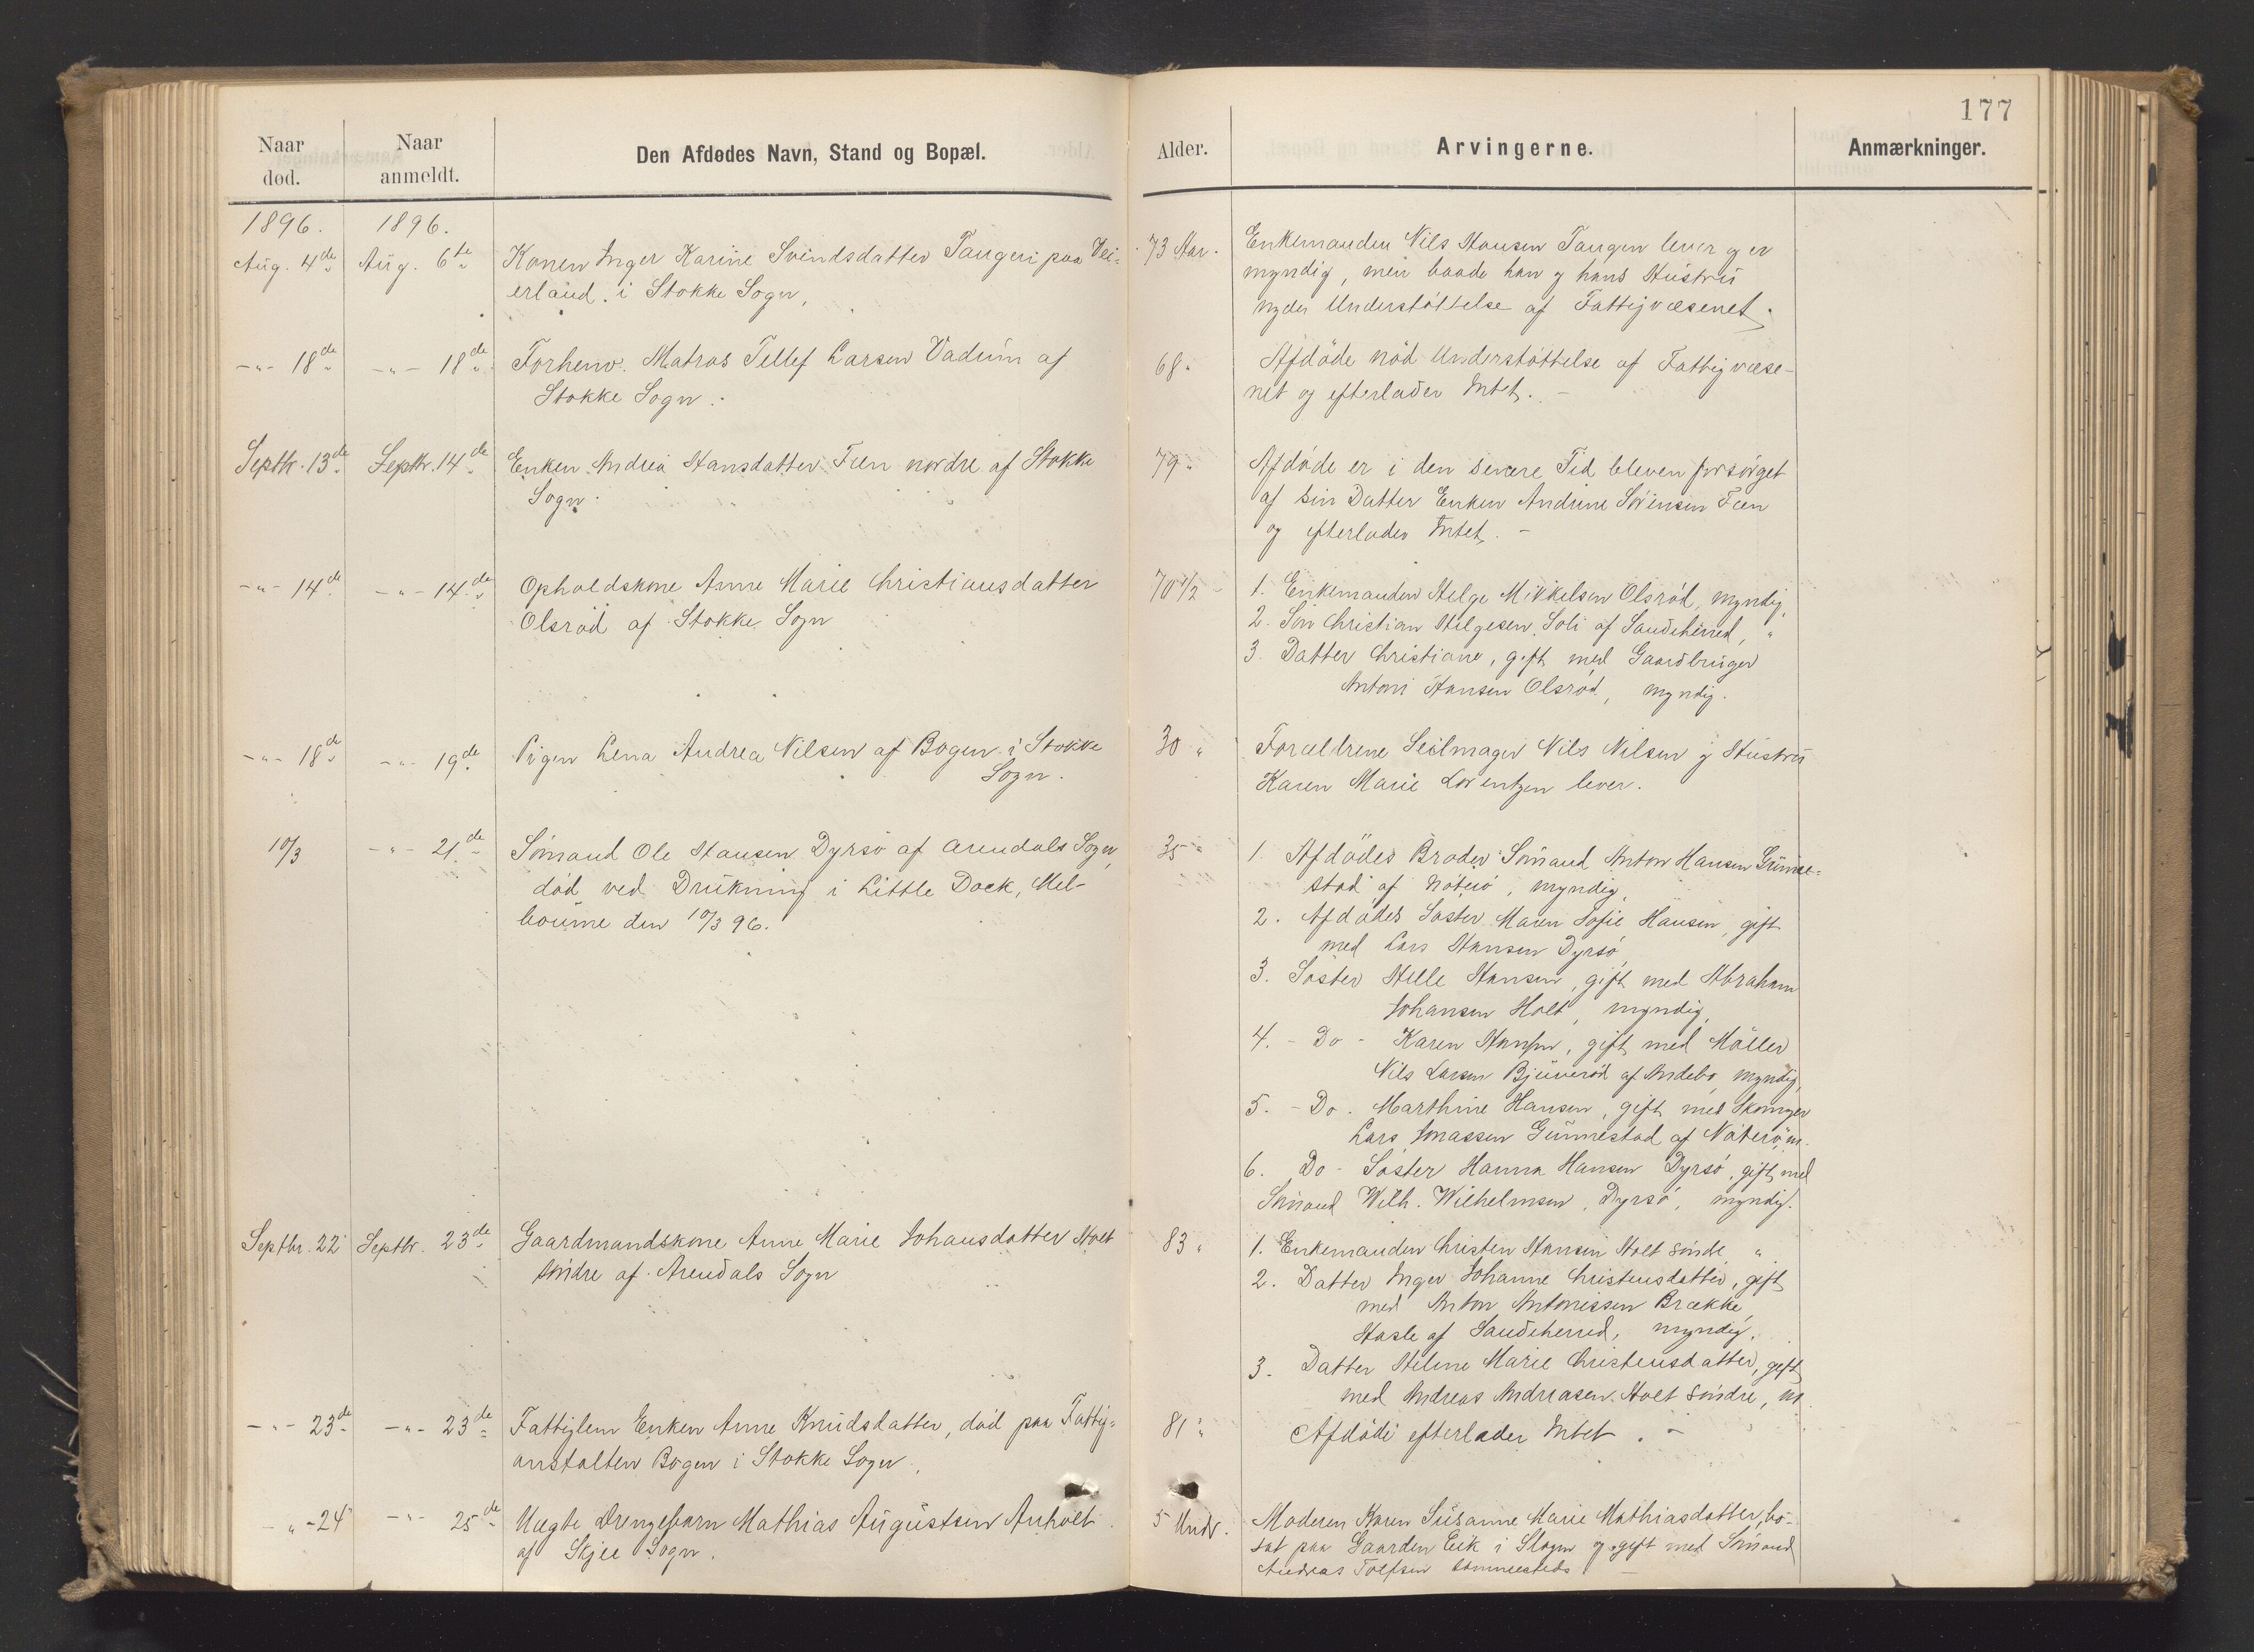 177
Naar død.
Naar anmeldt.
Den Afdødes Navn, Stand og Bopæl.
Alder.
Arvingerne.
Anmærkninger.
1896.
1896.
Aug. 4de
Aug. 6te
Konen Inger Karine Svendsdatter Tangen paa Vei-
erland i Stokke Sogn.
73 Aar.
Enkemanden Nils Hansen Tangen lever og er
myndig, men baade han og hans Hustru
nyder Understøttelse af Fattigvæsenet.
-"- 18de
-"- 18de
Forhenv. Matros Tellef Larsen Vadum af
Stokke Sogn.
68 "
Afdøde nød Understøttelse af Fattigvæse-
net og efterlader Intet. -
Septbr. 13de
Septbr. 14de
Enken Andrea Hansdatter Fæn nordre af Stokke
Sogn.
79 "
Afdøde er i den senere Tid bleven forsørget
af sin Datter Enken Andrine Sørensen Fæn
og efterlader Intet. -
-"- 14de
-"- 14de
Opholdskone Anne Marie Christiansdatter
Olsrød af Stokke Sogn
70 1/2
1. Enkemanden Helge Mikkelsen Olsrød, myndig,
2. Søn Christian Helgesen Soli af Sandeherred, "
3. Datter Christiane, gift med Gaardbruger
Antoni Hansen Olsrød, myndig.
-"- 18de
-"- 19de
Pigen Lena Andrea Nilsen af Bogen i Stokke
Sogn.
30 "
Forældrene Seilmager Nils Nilsen og Hustru
Karen Marie Lorentzen lever.
10/3
-"- 21de
Sømand Ole Hansen Dyrsø af Arendals Sogn,
død ved Drukning i Little Dock, Mel-
bourne den 10/3 96.
35 "
1. Afdødes Broder Sømand Anton Hansen Gunne-
stad af Nøterø, myndig,
2. Afdødes Søster Maren Sofie Hansen, gift
med Lars Hansen Dyrsø,
3. Søster Helle Hansen, gift med Abraham
Johansen Holt, myndig,
4. - Do - Karen Hansen, gift med Møller
Nils Larsen Bjuerød af Andebo, myndig,
5. - Do. Marthine Hansen, gift med Skomager
Lars Jonassen Gunnestad af Nøterø, m.
6. Do - Søster Hanna Hansen Dyrsø, gift med
Sømand Wilh. Wilhelmsen, Dyrsø, myndig.
Septbr. 22
Septbr. 23de
Gaardmandskone Anne Marie Johansdatter Holt
søndre af Arendals Sogn
83 "
1. Enkemanden Christen Hansen Holt søndre "
2. Datter Inger Johanne Christensdatter, gift
med Anton Antonissen Brække,
Hasle af Sandeherred, myndig.
3. Datter Helene Marie Christensdatter, gift
med Andreas Andreasen Holt søndre, m.
-"- 23de
-"- 23de
Fattiglem Enken Anne Knudsdatter, død paa Fattig-
anstalten Bogen i Stokke Sogn.
81 "
Afdøde efterlader Intet. -
-"- 24
-"- 25de
Uægte Drengebarn Mathias Augustsen Anholt
af Skjee Sogn.
5 Undr.
Moderen Karen Susanne Marie Mathiasdatter, bo-
sat paa Gaarden Eik i Slagen og gift med Sømand
Andreas Tolfsen sammesteds. -